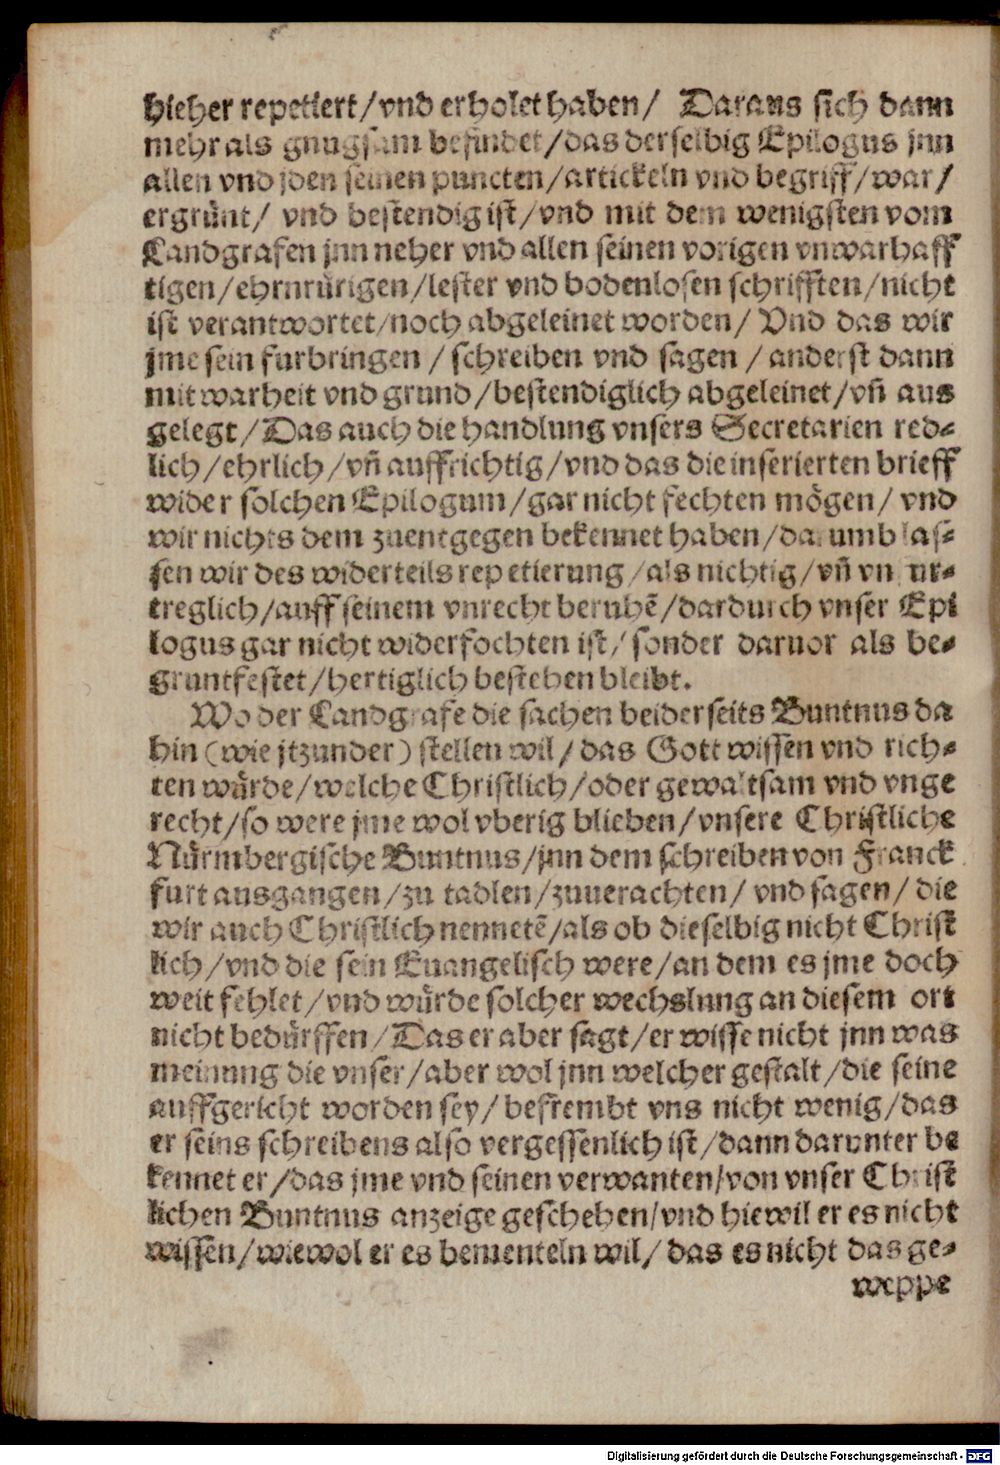 hieher repetiert/vnd erholet haben/ Daraus sich dann
mehr als gnugsam befindet/das derselbig Epilogus jnn
allen vnd jden seinen puncten/artickeln vnd begriff/war/
ergrünt/ vnd bestendig ist/vnd mit dem wenigsten vom
Landgrafen jnn neher vnd allen seinen vorigen vnwarhaff
tigen/ehrnrürigen/lester vnd bodenlosen schrifften/nicht
ist verantwortet/noch abgeleinet worden/ Vnd das wir
jme sein furbringen/schreiben vnd sagen/anderst dann
mit warheit vnd grund/bestendiglich abgeleinet/vñ aus
gelegt/Das auch die handlung vnsers Secretarien red⸗
lich/ehrlich/vñ auffrichtig/vnd das die inserierten brieff
wider solchen Epilogum/gar nicht fechten mögen/ vnd
wir nichts dem zuentgegen bekennet haben/darumb las⸗
sen wir des widerteils repetierung/als nichtig/vñ vn ur⸗
treglich/auff seinem vnrecht beruhē/dardurch vnser Epi
logus gar nicht widerfochten ist/ sonder daruor als be⸗
gruntfestet/hertiglich bestehen bleibt.
Wo der Landgrafe die sachen beiderseits Buntnus da
hin (wie jtzunder) stellen wil/das Gott wissen vnd rich⸗
ten würde/welche Christlich/oder gewaltsam vnd vnge
recht/so were jme wol vberig blieben/vnsere Christliche
Nürmbergische Buntnus/jnn dem schreiben von Franck
furt ausgangen/zu tadlen/zuuerachten/ vnd sagen/ die
wir auch Christlich nennetē/als ob dieselbig nicht Christ
lich/vnd die sein Euangelisch were/an dem es jme doch
weit fehlet/vnd würde solcher wechslung an diesem ort
nicht bedürffen/Das er aber sagt/er wisse nicht jnn was
meinung die vnser/aber wol jnn welcher gestalt/die seine
auffgericht worden sey/ befrembt vns nicht wenig/das
er seins schreibens also vergessenlich ist/dann darunter be
kennet er/das jme vnd seinen verwanten/von vnser Christ
lichen Buntnus anzeige geschehen/vnd hie wil er es nicht
wissen/wiewol er es bementeln wil/ das es nicht das ge⸗
weppe
Digitalisierung gefördert durch die Deutsche Forschungsgemeinschaft - DFG